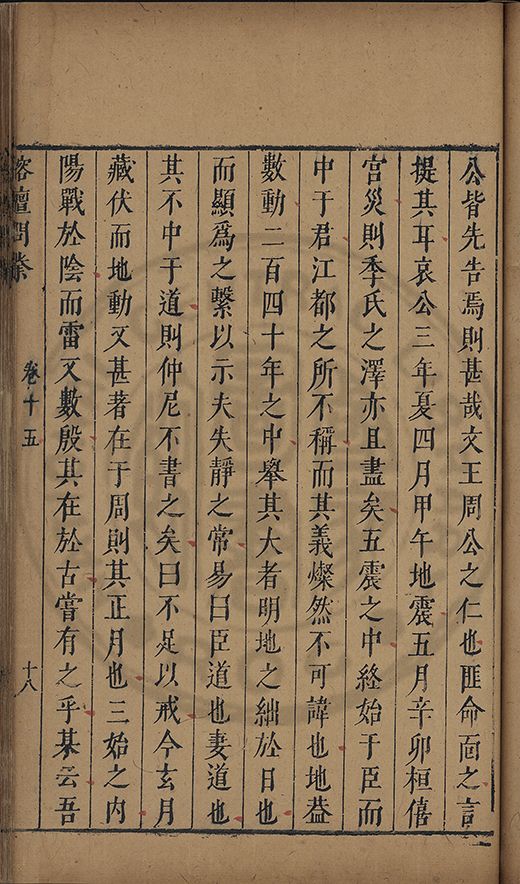 公皆先告焉則甚哉文王周公之仁也匪命面之言
提其耳哀公三年夏四月甲午地震五月辛卯桓僖
宮災則季氏之澤亦且盡矣五震之中終始于臣而
中于君江都之所不稱而其義燦然不可諱也地葢
數動二百四十年之中舉其大者明地之絀於日也
而顯爲之繫以示夫失靜之常易曰臣道也妻道也
其不中于道則仲尼不書之矣曰不足以戒今玄月
藏伏而地動又甚著在于周則其正月也三始之內
陽戰於陰而雷又數殷其在於古嘗有之乎棊云吾
榕壇問業
卷十五
十八